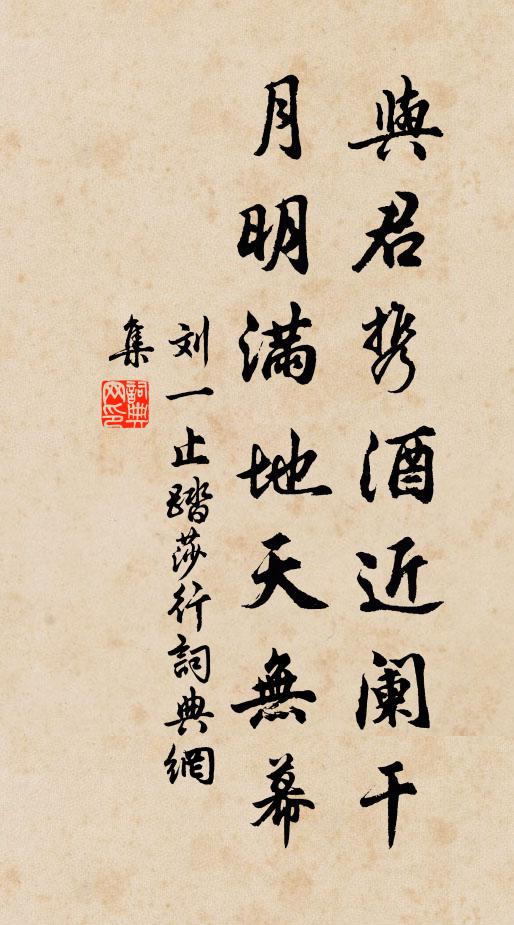 與君携酒近阑干
月明满地天無幕
刘一止踏莎行詞典網
集
詞典網印